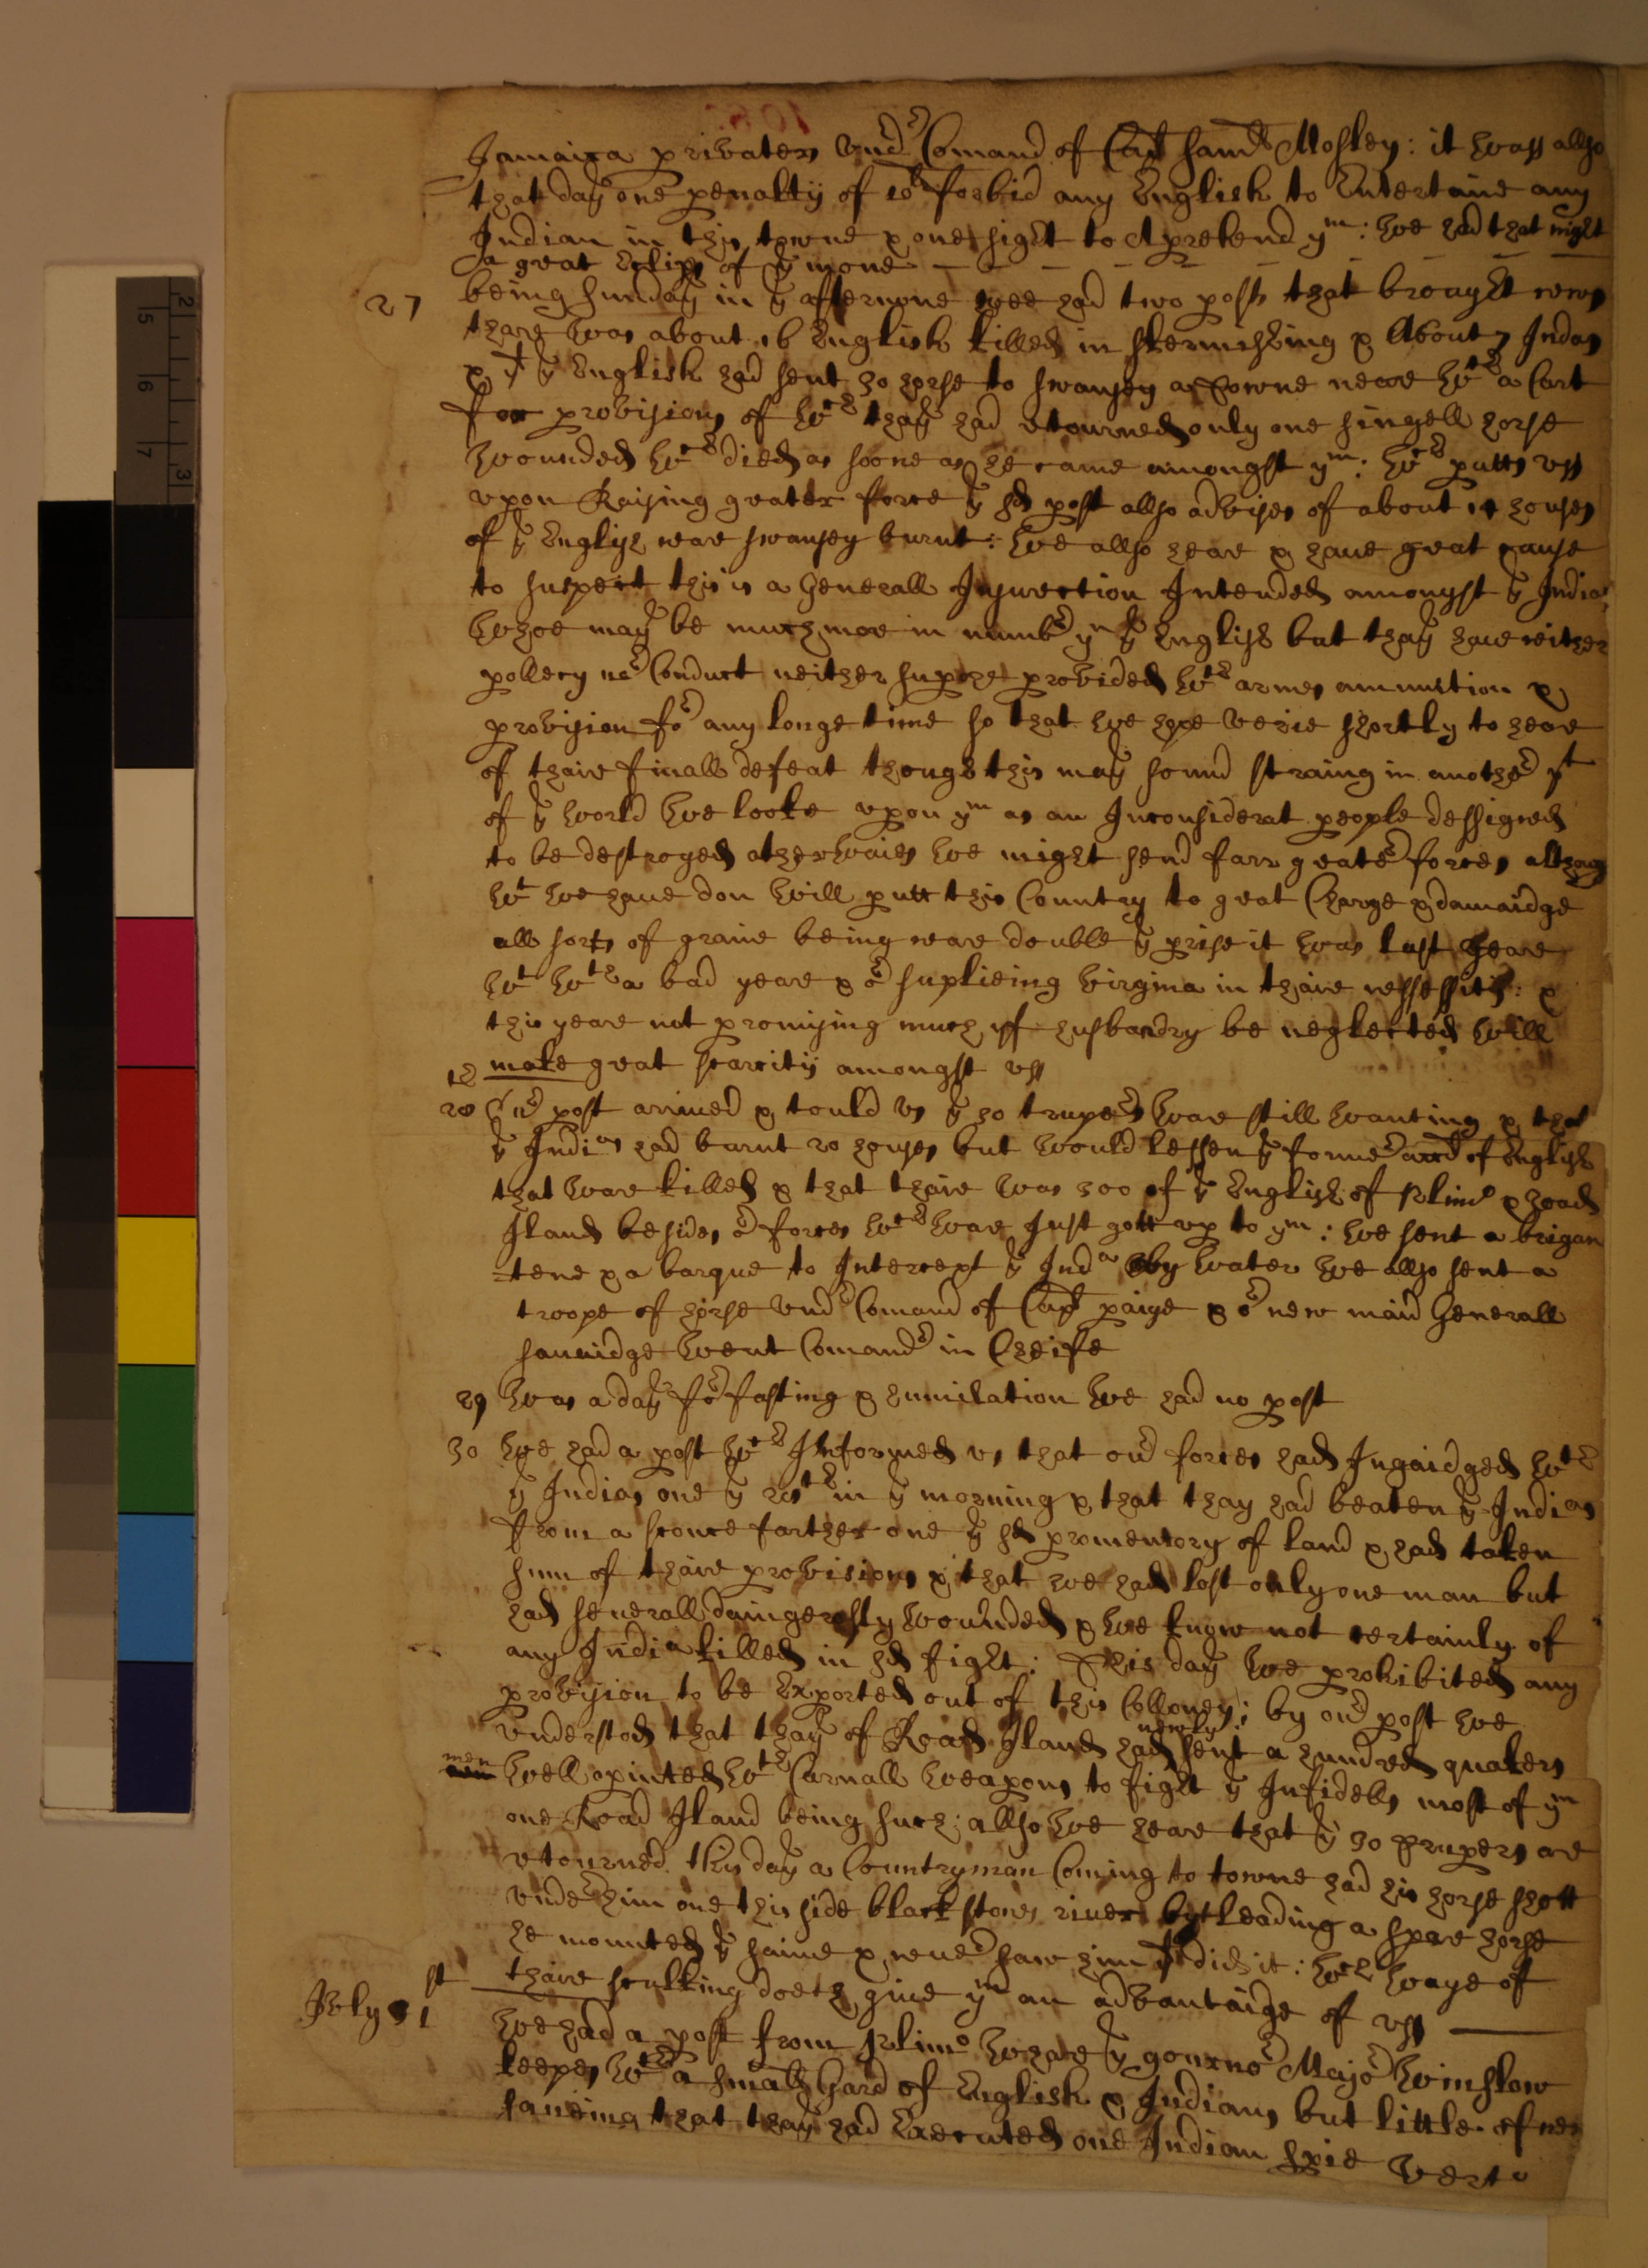 Jamaica privaters vnd^r Comand of Capt Sam^ll Mosley: it wass allso
that day one penalty of 10^li forbid any English to Entertaine any
Indian in this towne & one sight to Aprehend y^m: wee had that night
a great Eclips of y^e mone
27 being sunday in y^e afternone wee had two posts that brought news
thare was about 16 English killed in skermishing & About 7 Indas
& y^t y^e English had sent 30 horse to swansey a towne neare w^th a Cart
for provisions of w^ch thay had retourned only one singell horse
wounded w^ch died as soone as he came amongst y^m: w^ch putts vss
vpon Raising greater force y^e s^d post allso advises of about 14 houses
of y^e English neare swansey burnt: wee allso heare & haue great cause
to suspect this is a Generall Insurection Intended amongst y^e Indias
whoe may be much more in numb^r y^n y^e English but thay haue neither
pollecy no^r Conduct neither supose provided w^th armes ammution &
provision fo^r any longe time so that wee hope verie shortly to heare
of thaire finall defeat though this may sound straing in anothe^r p^t
of y^e world wee looke vpon y^m as an Inconsiderat people dessigned
to be destroyed otherwaies wee might send farr greate^r forces althoug
w^t wee haue don will putt this Country to great Charge & damaidge
all sorts of graine being neare double y^e prise it was last yeare
w^t w^th a bad yeare & o^r suplieing virginia in thaire nessessity: &
this yeare not promising much yff husbandry be neglected will
make great scarcity amongst vss
28^th Our post arrived & tould vs y^e 30 trupe^rs ware still wanting & that
y^e Indi^as had burnt 20 houses but would lessen y^e forme^r acc^t of English
that ware killed & that thaire was 300 of y^e English of plim^o & Road
Iland besides o^r forces w^ch ware Just gott vp to y^m: wee sent a brigan
=tene & a barque to Intercept y^e Ind^a by water wee allso sent a
troope of horse vnd^r Comand of Capt paige & o^r new maid Generall
sauaidge went Comand^r in Cheife
29 was a day fo^r fasting & humilation wee had no post
30 wee had a post w^ch Informed vs that ou^r forces had Ingaidged w^th
y^e Indias one y^e 28^th in y^e morning & that thay had beaten y^e Indi^as
from a sconce farther one y^e s^d promentory of land & had taken
sum of thaire provisions & that wee had lost only one man but
had seuerall daingerosly wounded & wee know not certainly of
any Indi^a killed in s^d fight: This day wee prohibited any
provision to be Exported out of this Colloney; by ou^r post wee
vnderstod that thay of Road Iland had newly sent a hundred quakers
men well apinted w^th Carnall weapons to fight y^e Infidells most of y^m
one Road Iland being such: allso wee heare that y^e 30 trupers are
retourned. this day a Countryman Coming to towne had his horse shott
vnde^r him one this side blackstones river but leading a spare horse
he mounted y^e saime & neue^r saw him y^t did it: w^ch waye of
thaire sculking doeth giue y^m an advantaidge of vss
July 1^st wee had a post from plim^o whare y^e gouerno^r Majo^r winslow
keepes w^th a small Gard of English & Indians but little of new
saueing that thay had Executed one Indian spie